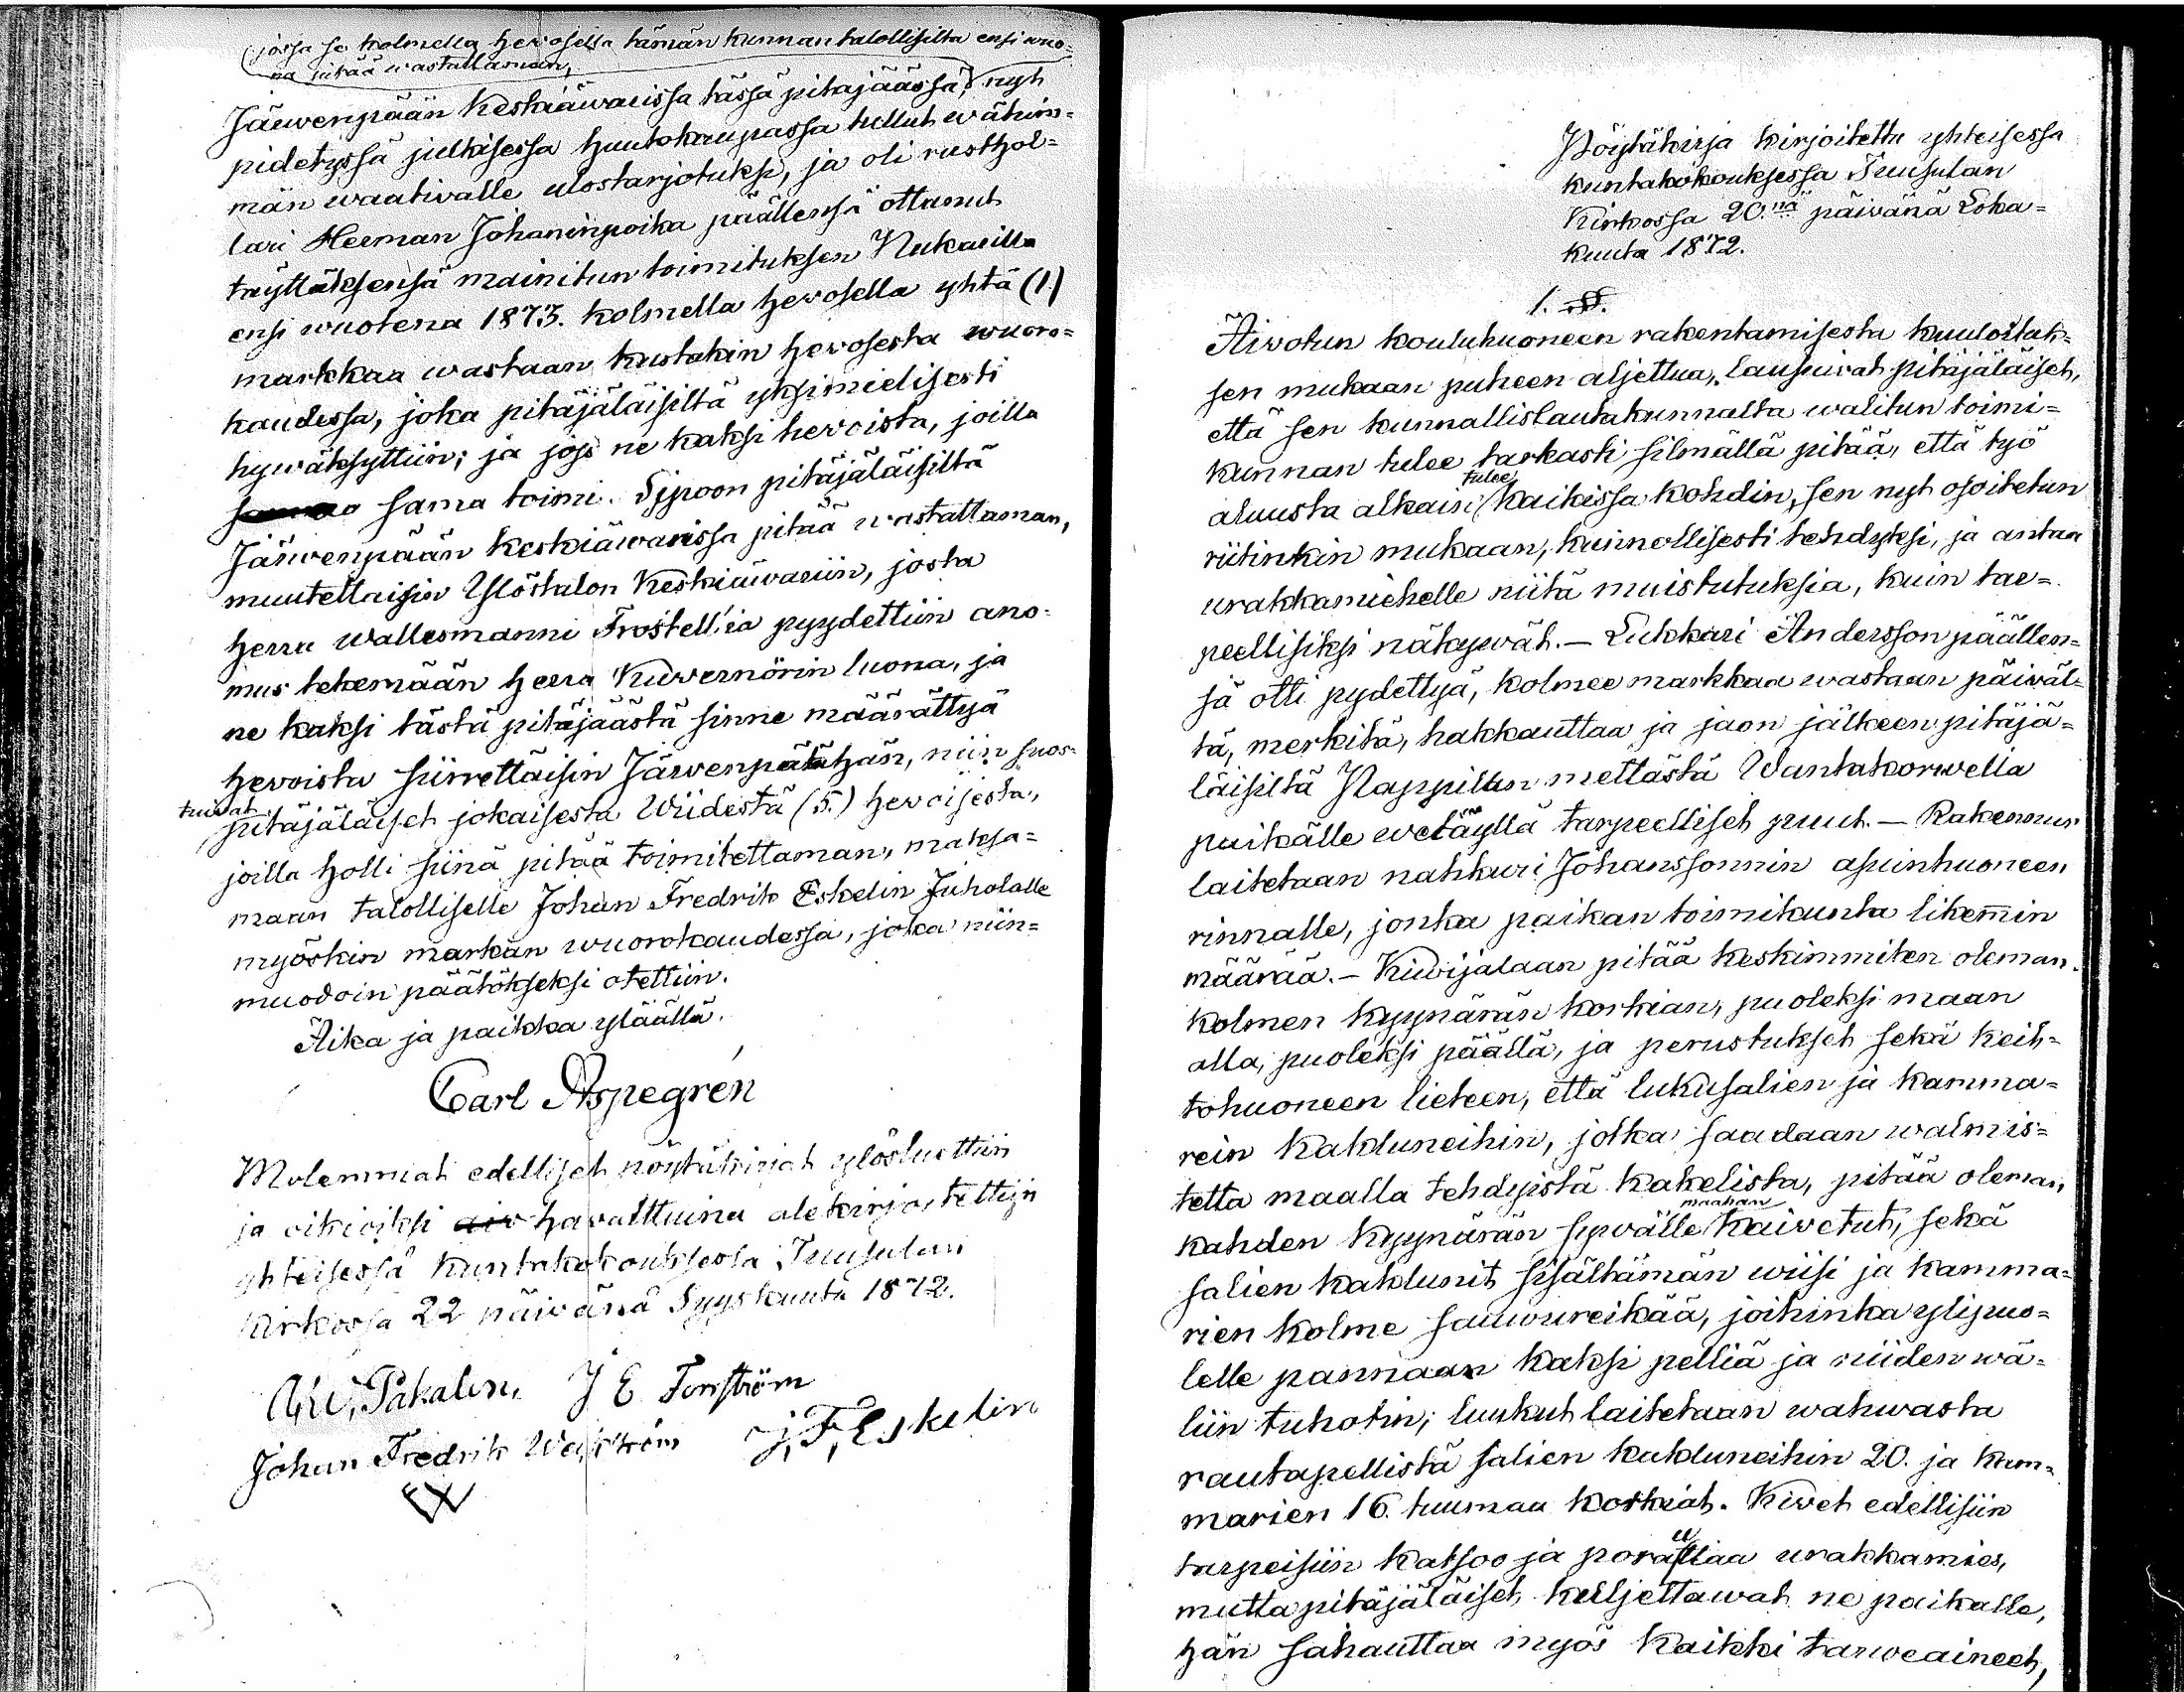 (jossa se kolmella hevosella tämän kunnan talollisilta ensi wuo=
na pitää wastattaman,
Järwenpään Keskiäwarissa tässä pitäjäässä, nyt
pidetyssä julkisessa huutokaupassa tullut wähim=
män waativalle ulostarjotuksi, ja oli rusthol=
lari Herman Johaninpoika päällensä ottanut
täyttäksensä mainitun toimituksen Nukarilla
ensi wuotena 1873. kolmella hevosella yhtä (1.)
markkaa wastaan kustakin hevosesta wuoro=
kaudessa, joka pitäjäläisiltä yksimielisesti
hywäksyttiin; ja jos ne kaksi hevoista, joilla
sama toimi Sipoon pitäjäläisiltä
Järwenpään keskiäwarissa pitää wastattaman,
muutettaisin Ylöstalon Keskiäwariin, josta
herra wallesmanni Frostell'ia pyydettiin ano=
mus tekemään herra Kuwernörin luona, ja
ne kaksi tästä pitäjäästä sinne määrättyä
hevoista siirrettäisin Järwenpäähän, niin suos=
tuivat
pitäjäläiset jokaisesta Wiidestä (5.) hevoisesta,
joilla holli siinä pitää toimitettaman, maksa=
maan talolliselle Johan Fredrik Eskelin Juholalle
myöskin markan wuorokaudessa, joka niin=
muodoin päätökseksi otettiin.
Aika ja paikka ylläällä.
Carl Aspegrén
Molemmat edelliset pöytäkirjat ylösluettiin
ja oikioiksi havaittuina alekirjoitettiin
yhteisessä Kuntakokouksessa Tuusulan
Kirkossa 22 päiwänä Syyskuuta 1872.
Pakalen, J E Forsström
Johan Fredrik J, F, Eskelin
Pöytäkirja kirjoitettu yhteisessä
kuntakokouksessa Tuusulan
Kirkossa 20.nä päivänä Loka=
kuuta 1872.
1. §§.
Aivotun kouluhuoneen rakentamisesta kuulostak=
sen mukaan puheen aljettua, lausuivat pitäjäläiset,
että sen kunnallislautakunnalta walitun toimi=
kunnan tulee tarkasti silmällä pitää, että työ
tulee
alusta alkain kaikissa kohdin, sen nyt osoitetun
riitinkin mukaan, kunnollisesti tehdyksi, ja antaa
urakkamiehelle niitä muistutuksia, kuin tar=
peellisiksi näkywät. — Lukkari Andersson päällen=
sä otti pydettyä, kolmee markkaa wastaan päiväl=
tä, merkitä, hakkauttaa ja jaon jälkeen pitäjä=
läisiltä Nappilan mettästä Wantakorwella
paikälle wetäyllä tarpeelliset puut. — Rakennus
laitetaan nahkuri Johanssonnin asuinhuoneen
rinnalle, jonka paikan toimikunta likemmin
määrää. — Kiwijalaan pitää keskimmiten oleman
kolmen kyynärän korkian, puoleksi maan
alla, puoleksi päällä, ja perustukset sekä keit=
tohuoneen lieteen, että lukusalien ja kamma=
rein kakluneihin, jotka saadaan walmis=
tetta maalla tehdyistä kakelista, pitää oleman
maahan
kahden kyynärän sywälle kaivetut, sekä
salien kaklunit sisältämän wiisi ja kamma=
rien kolme sauwureikää, joihinka ylipuo=
lelle pannaan kaksi pelliä ja niiden wä=
liin tuhotin; luukut laitetaan wahwasta
rautapellistä salien kakluneihin 20. ja kam=
marien 16. tuumaa korkiat. Kiwet edellisiin
u
tarpeisiin katsoo ja porattaa urakkamies,
mutta pitäjäläiset kuljettawat ne paikalle,
hän sahauttaa myös kaikki tarweaineet,